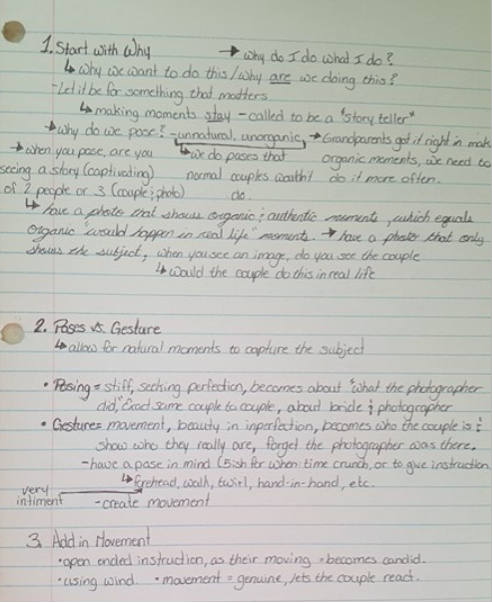 1. Start with Why → Why do I do what I do?
↳ Why we want to do this/why are we doing this?
-Let it be for something that matters
↳ making moments stay - called to be a "story teller"
→ why do we pose? - unnatural, unorganic, → Grandparents got it right in mak
→ when you pose, are you ↳ we do poses that organic moments, we need to
seeing a story (captivating) normal couples wouldn't do it more often.
of 2 people or 3 (couple & photo) do.
↳ have a photo that shows organic & authentic moments, which equals
organic "would happen in real life" moments. → have a photo that only
shows the subject, when you see an image, do you see the couple
↳ would the couple do this in real life
2. Poses vs. Gesture
↳ allow for natural moments to capture the subject
• Posing = stiff, seeking perfection, becomes about "what the photographer
did," Exact same couple to couple, about bride & photographer
• Gestures movement, beauty in inperfection, becomes who the couple is &
show who they really are, forget the photographer was there.
- have a pose in mind (5ish for when time crunch, or to give instruction
↳ forehead, walk, twirl, hand-in-hand, etc.
very
intiment - create movement
3. Add in Movement
• open ended instruction, as their moving = becomes candid.
• using wind. • movement = genuine, lets the couple react.